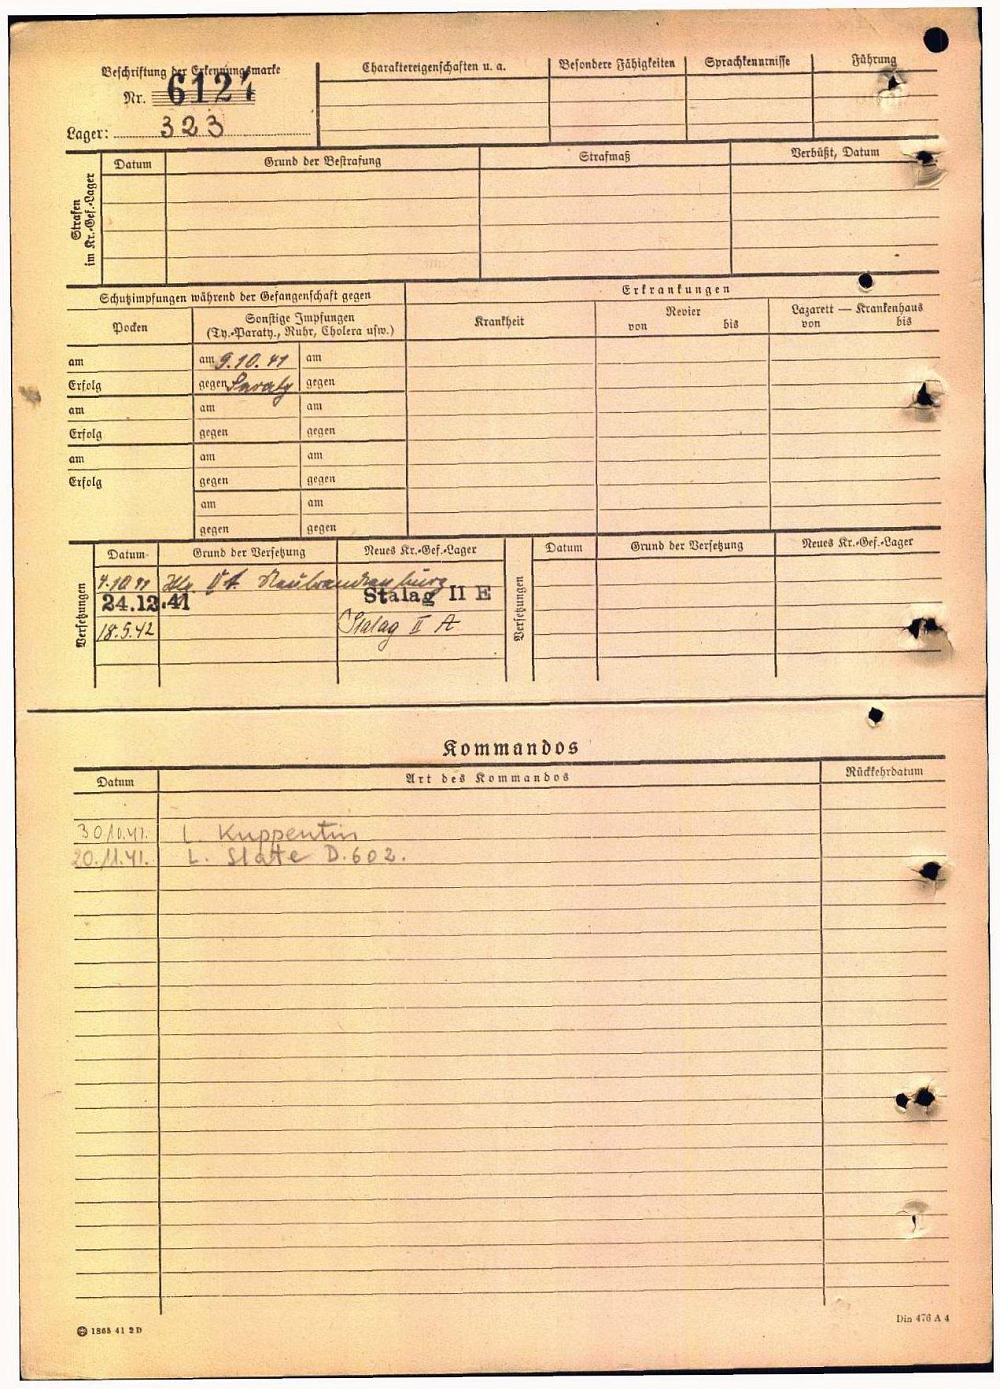 Beschriftung der Erkennungsmarke
Nr. 6124
Lager: 323
Charaktereigenschaften u. a.
Besondere Fähigkeiten
Sprachkenntnisse
Führung
Strafen im Kr.-Gef.-Lager
Datum
Grund der Bestrafung
Strafmaß
Verbüßt, Datum
Schutzimpfungen während der Gefangenschaft gegen
Erkrankungen
Pocken
Sonstige Impfungen
(Ty.-Paraty., Ruhr, Cholera usw.)
Krankheit
Revier
von bis
Lazarett — Krankenhaus
von bis
am am 9.10.41 am
Erfolg gegen gegen
am am am
Erfolg gegen gegen
am am am
Erfolg gegen gegen
am am
gegen gegen
Versetzungen
Datum Grund der Versetzung Neues Kr.-Gef.-Lager
Versetzungen
Datum Grund der Versetzung Neues Kr.-Gef.-Lager
Neubrandenburg
24.12.41 Stalag II E
18.5.42 Stalag II A
Kommandos
Datum Art des Kommandos Rückkehrdatum
30/10.41. L. Kuppentin
20.11.41. L. Slate D.602.
1865 41 2 D
Din 476 A 4